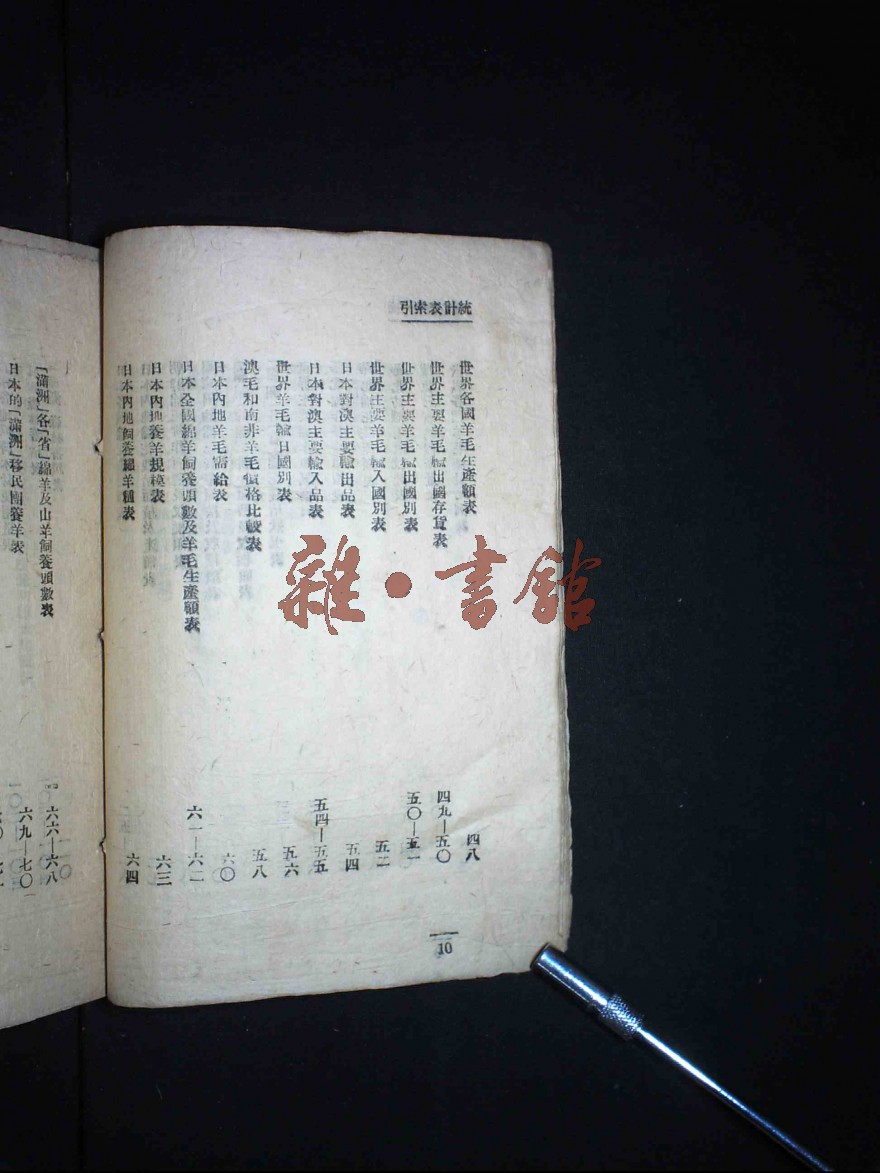 統計表索引
世界各國羊毛生產額表 四八
世界主要羊毛輸出國存貨表 四九—五〇
世界主要羊毛輸出國別表 五〇—五一
世界主要羊毛輸入國別表 五二
日本對澳主要輸出品表 五四
日本對澳主要輸入品表 五四—五五
世界羊毛輸日國別表 五六
澳毛和南非羊毛價格比較表 五八
日本內地羊毛需給表 六〇
日本全國綿羊飼養頭數及羊毛生產額表 六一—六二
日本內地養羊規模表 六三
日本內地飼養綿羊種表 六四
10
「滿洲」各「省」綿羊及山羊飼養頭數表 六六—六八
日本的「滿洲」移民團養羊表 六九—七〇
雜·書館